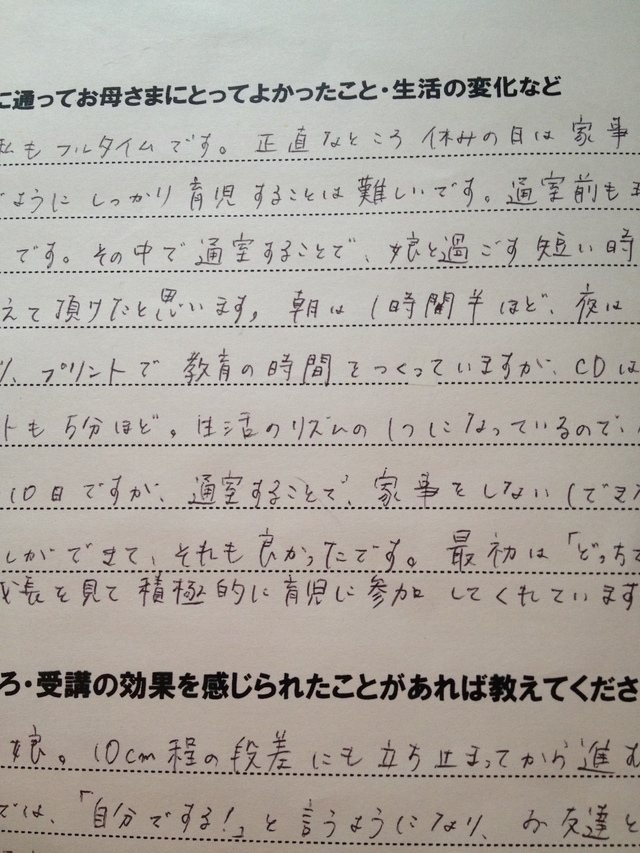 に通ってお母さまにとってよかったこと・生活の変化など
私もフルタイムです。正直なところ休みの日は家事
ようにしっかり育児することは難しいです。通室前も
です。その中で通室することで、娘と過ごす短い時
えて頂けたと思います。朝は1時間半ほど、夜は
プリントで教育の時間をつくっていますが、CDは
トも5分ほど。生活のリズムの1つになっているので、
10日ですが、通室することで、家事をしない(でき
しができて、それも良かったです。最初は「どっちで
成長を見て積極的に育児に参加してくれています
ろ・受講の効果を感じられたことがあれば教えてくださ
娘。10cm程の段差にも立ち止まってから進む
では、「自分でする!」と言うようになり、お友達と